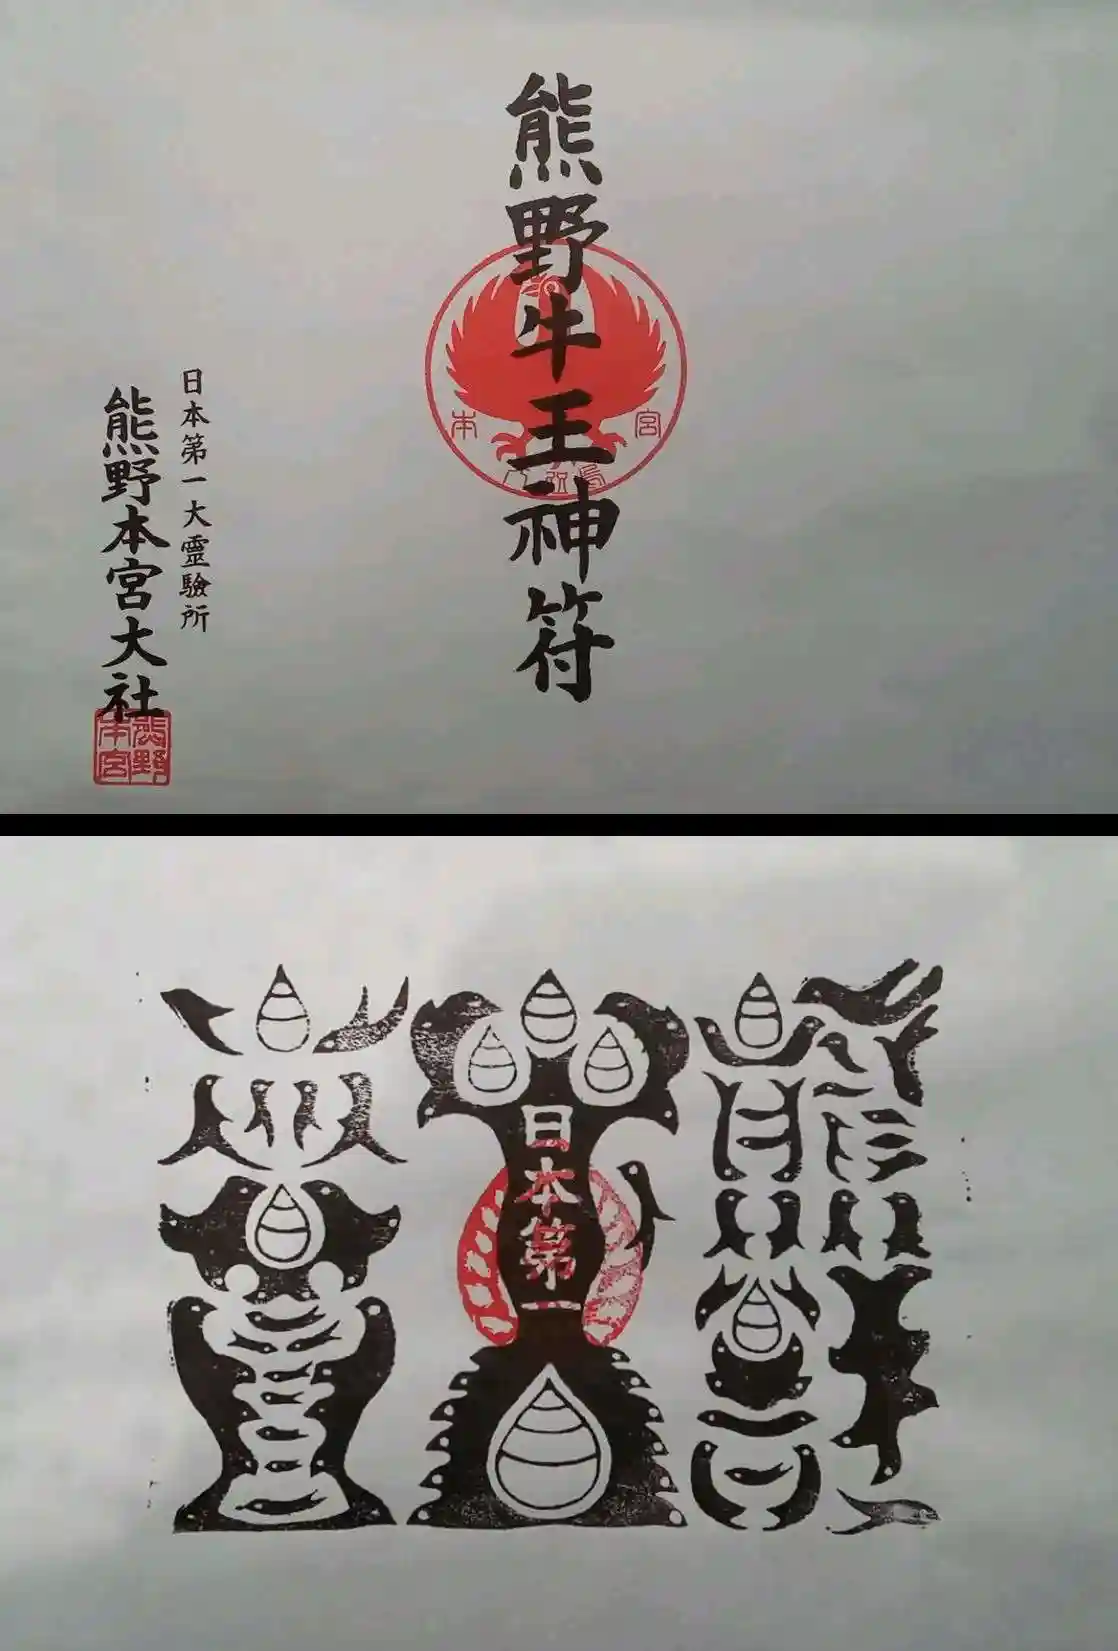 熊野牛王神符
本
宮
日本第一大靈驗所
熊野本宮大社
熊野
本宮
日本第一